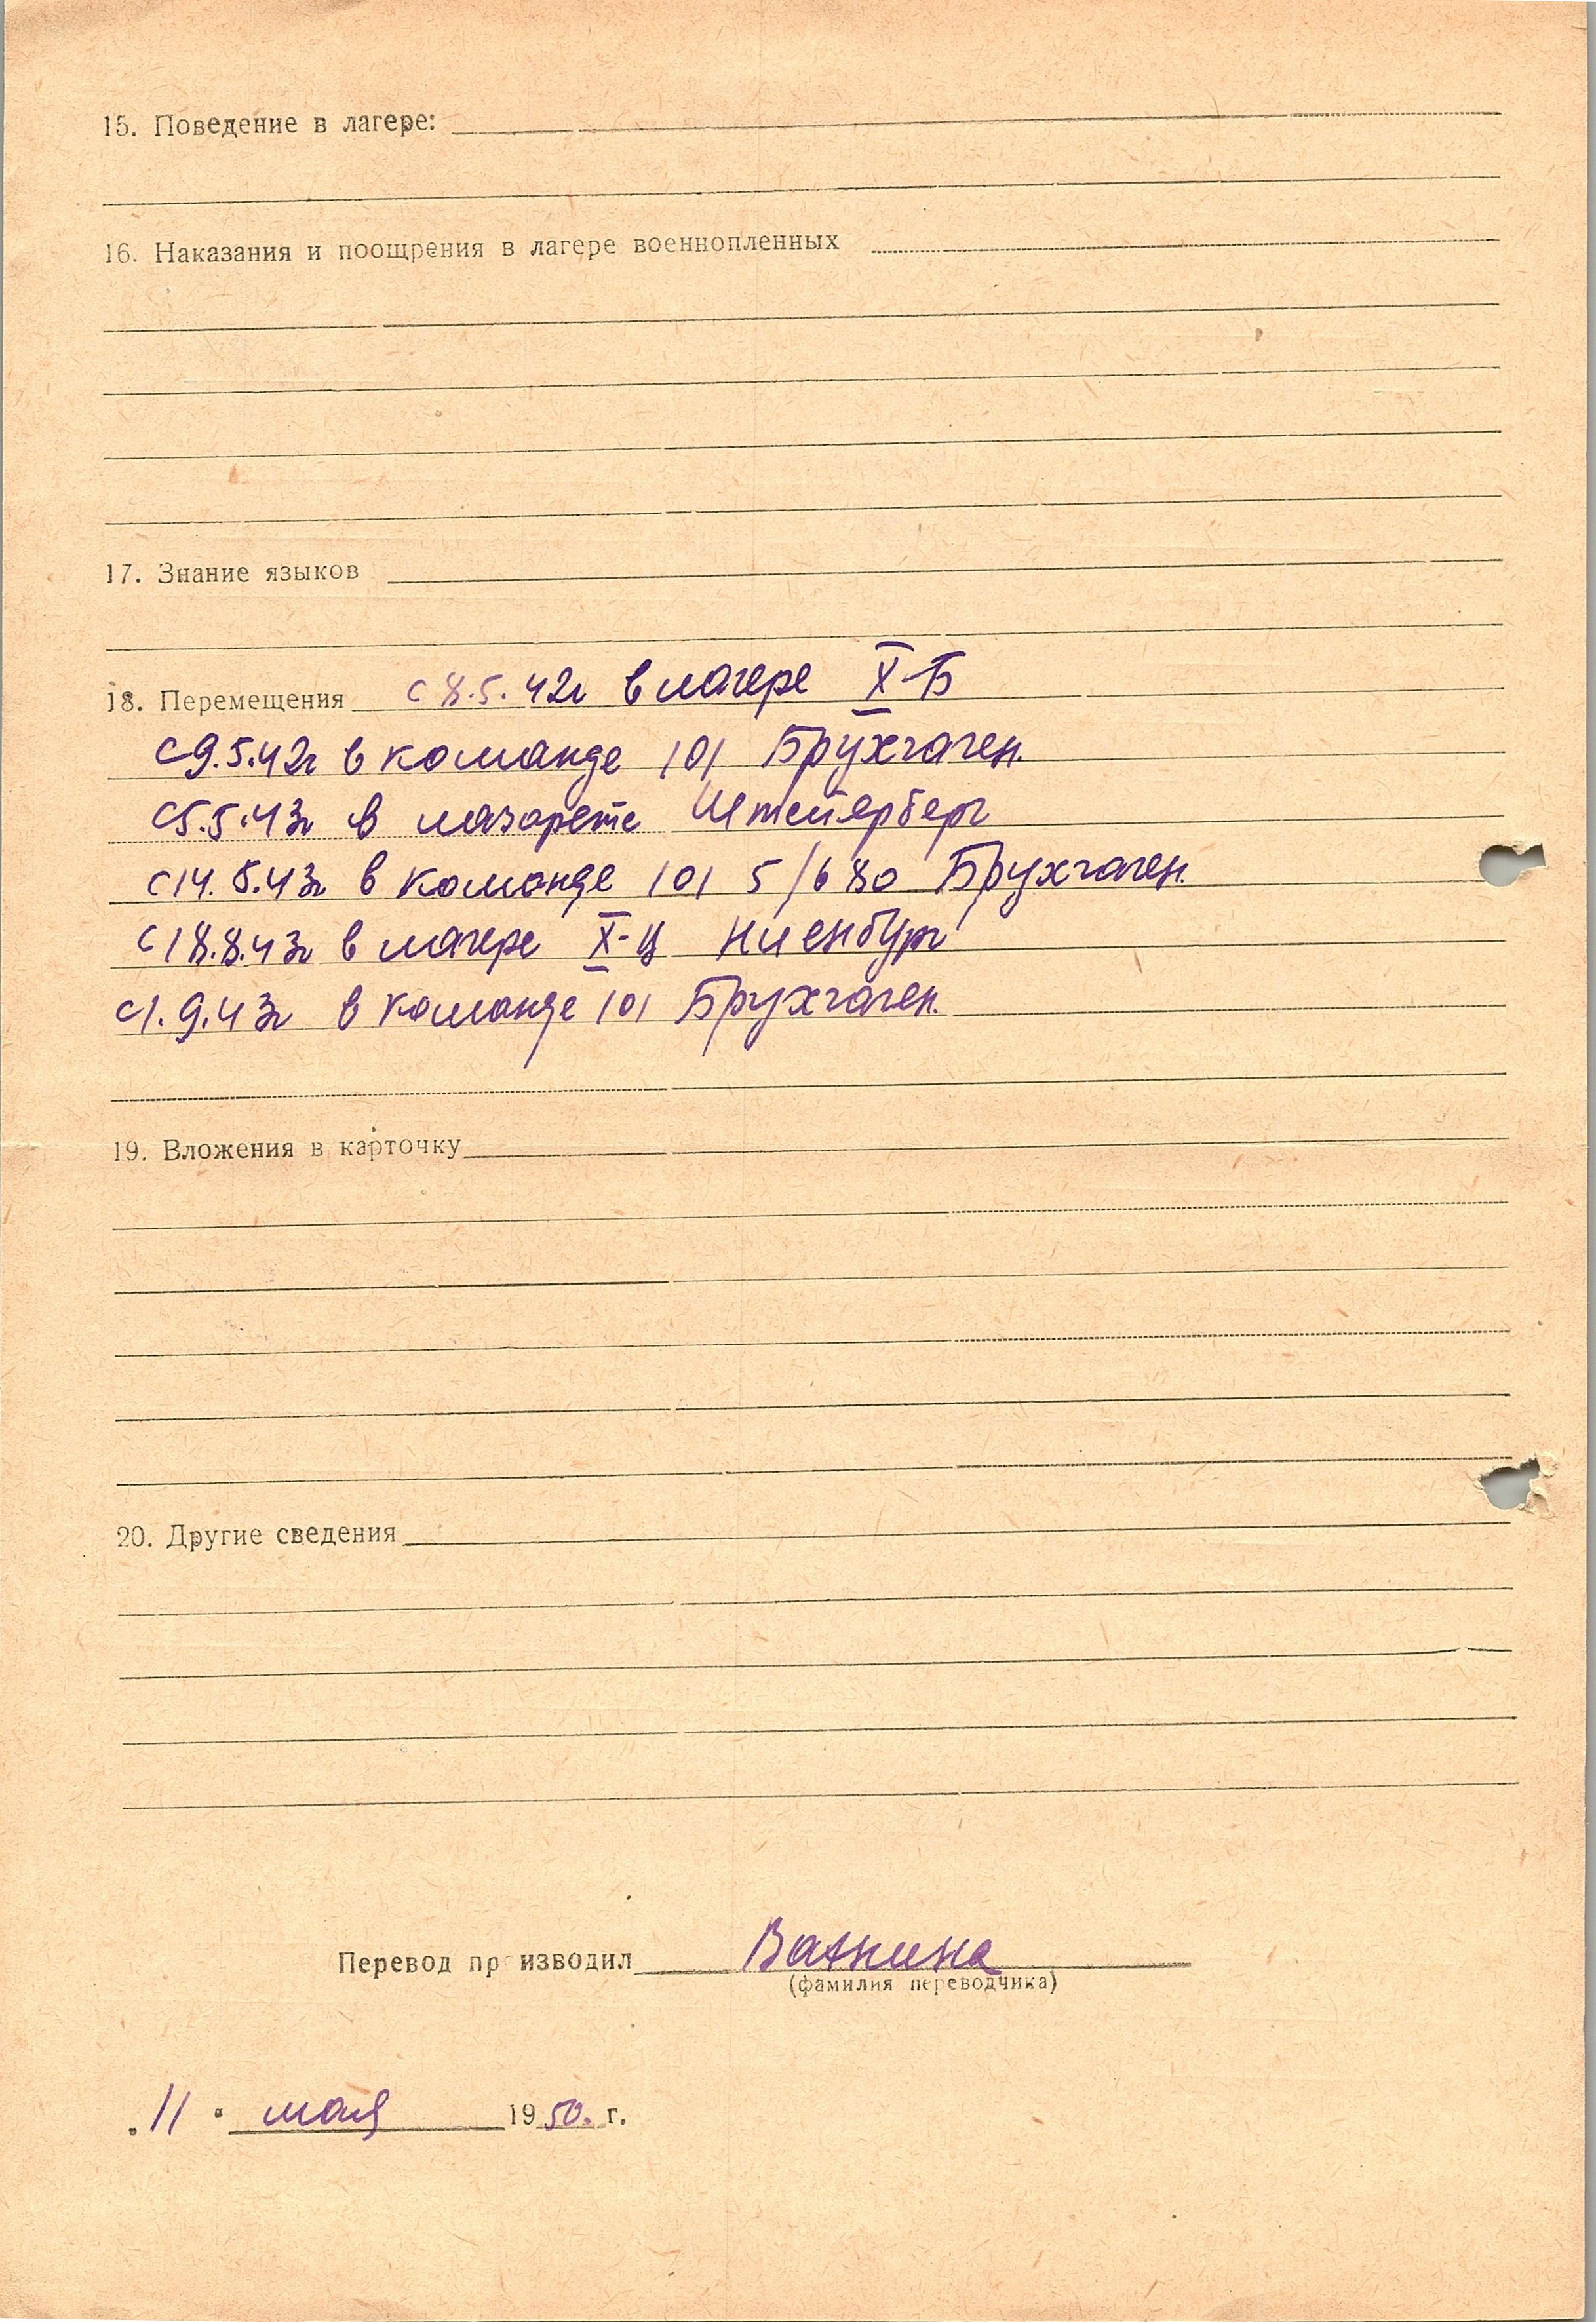 15. Поведение в лагере:
16. Наказания и поощрения в лагере военнопленных
17. Знание языков
18. Перемещения с 8.5.42г в лагере X-Б
с 9.5.42г в команде 101 Брухгаген.
с 5.5.43г в лазарете Штейерберг
с 14.5.43г в команде 101 5/680 Брухгаген.
с 18.8.43г в лагере X-Ц Ниенбург
с 1.9.43г в команде 101 Брухгаген.
19. Вложения в карточку
20. Другие сведения
Перевод производил Ваткина
(фамилия переводчика)
„11" мая 1950. г.